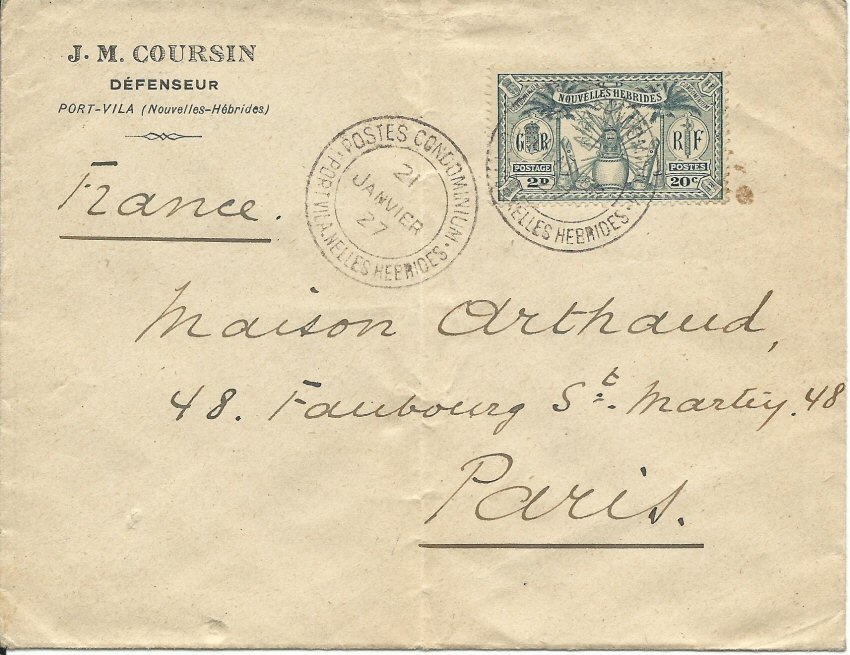 J. M. COURSIN
DÉFENSEUR
PORT-VILA (Nouvelles-Hébrides)
France.
POSTES CONDOMINIUM
PORT VILA. NELLES HEBRIDES
21
JANVIER
27
NOUVELLES HEBRIDES
G R
R F
POSTAGE
POSTES
2D
20c
NELLES HEBRIDES
Maison Arthaud,
48. Faubourg St. Martin. 48
Paris.